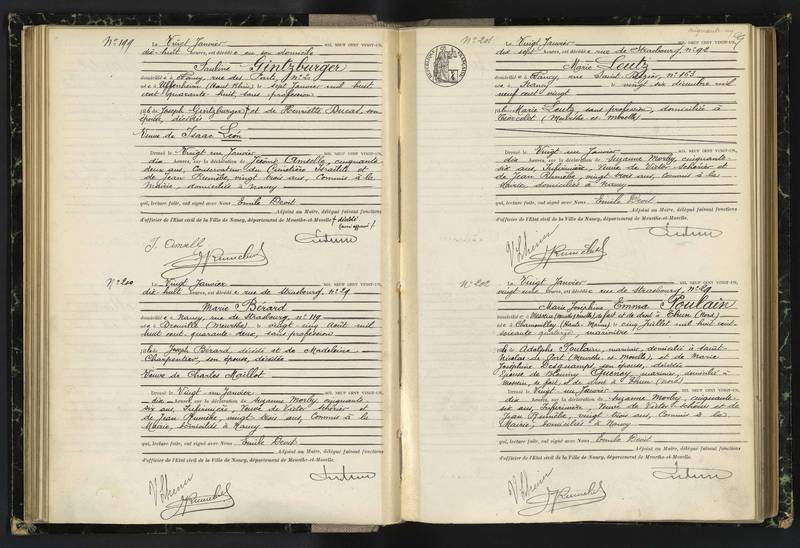 N° 199
Le Vingt Janvier MIL NEUF CENT VINGT-UN,
dix-huit heures, est décédée en son domicile
Pauline Gintzburger
domiciliée à Nancy, rue des Ponts, N° 2
née à Uffenheim (Haut Rhin), le sept Janvier mil huit
cent quarante huit, sans profession
fille de Joseph Gintzburger et de Henriette Ducas, son
épouse, décédés
Veuve de Isaac Léon
Dressé le Vingt un Janvier MIL NEUF CENT VINGT-UN,
dix heures, sur la déclaration de Jérôme Amselle, cinquante
deux ans, Conservateur du Cimetière Israélite et
de Jean Rumelle, vingt trois ans, Commis à la
Mairie, domiciliés à Nancy
qui, lecture faite, ont signé avec Nous Emile Devit
Adjoint au Maire, délégué faisant fonctions
d'officier de l'Etat civil de la Ville de Nancy, département de Meurthe-et-Moselle.
J. Amsell
N° 200
Le Vingt Janvier MIL NEUF CENT VINGT-UN,
dix-huit heures, est décédée rue de Strasbourg, N° 29
Marie Bérard
domiciliée à Nancy, rue de Strasbourg, N° 119
née à Drouville (Meurthe) le vingt cinq Août mil
huit cent quarante deux, sans profession
fille de Joseph Bérard, décédé et de Madeleine
Charpentier, son épouse, décédée
Veuve de Charles Maillot
Dressé le Vingt un Janvier MIL NEUF CENT VINGT-UN,
dix heures, sur la déclaration de Suzanne Morley, cinquante
six ans, Infirmière, Veuve de Victor Schérier et
de Jean Rumelle, vingt trois ans, Commis à la
Mairie, domiciliés à Nancy
qui, lecture faite, ont signé avec Nous Emile Devit
Adjoint au Maire, délégué faisant fonctions
d'officier de l'Etat civil de la Ville de Nancy, département de Meurthe-et-Moselle.
N° 201
Le Vingt Janvier MIL NEUF CENT VINGT-UN,
dix sept heures, est décédée rue de Strasbourg, N° 92
Marie Leutz
domiciliée à Nancy, rue Saint N° 163
née à Nancy le vingt six décembre mil
neuf cent vingt
fille de Marie Leutz, sans profession, domiciliée à
(Meurthe et Moselle)
Dressé le Vingt un Janvier MIL NEUF CENT VINGT-UN,
dix heures, sur la déclaration de Suzanne Morley, cinquante
six ans, Infirmière, Veuve de Victor Schérier et
de Jean Rumelle, vingt trois ans, Commis à la
Mairie, domiciliés à Nancy
qui, lecture faite, ont signé avec Nous Emile Devit
Adjoint au Maire, délégué faisant fonctions
d'officier de l'Etat civil de la Ville de Nancy, département de Meurthe-et-Moselle.
N° 202
Le Vingt Janvier MIL NEUF CENT VINGT-UN,
vingt une heures, est décédée rue de Strasbourg, N° 29
Marie Joséphine Emma Poulain
domiciliée à (Nord) de fait et de droit à Thun (Nord)
née à Chamouilley (Haute Marne) le cinq Juillet mil huit cent
soixante quatorze, marinière
fille de Adolphe Poulain, marinier, domicilié à Saint
Nicolas de Port (Meurthe et Moselle), et de Marie
Joséphine son épouse, décédée
Epouse de Quenoy, marinier, domicilié à
de fait, et de droit à Thun (Nord)
Dressé le Vingt un Janvier MIL NEUF CENT VINGT-UN,
dix heures, sur la déclaration de Suzanne Morley, cinquante
six ans, Infirmière, Veuve de Victor Schérier et de
Jean Rumelle, vingt trois ans, Commis à la
Mairie, domiciliés à Nancy
qui, lecture faite, ont signé avec Nous Emile Devit
Adjoint au Maire, délégué faisant fonctions
d'officier de l'Etat civil de la Ville de Nancy, département de Meurthe-et-Moselle.